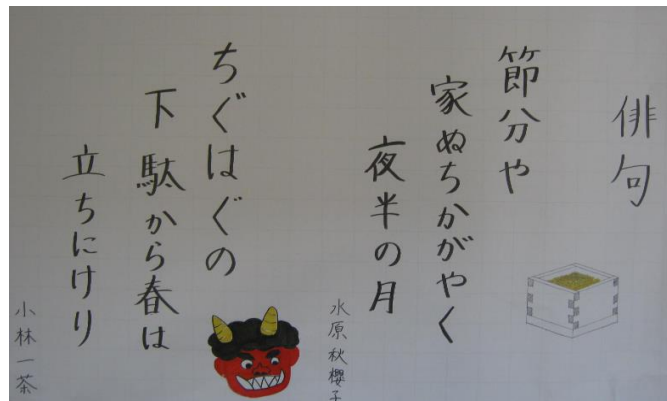 俳句
節分や
家ぬちかがやく
夜半の月
水原秋櫻子
ちぐはぐの
下駄から春は
立ちにけり
小林一茶